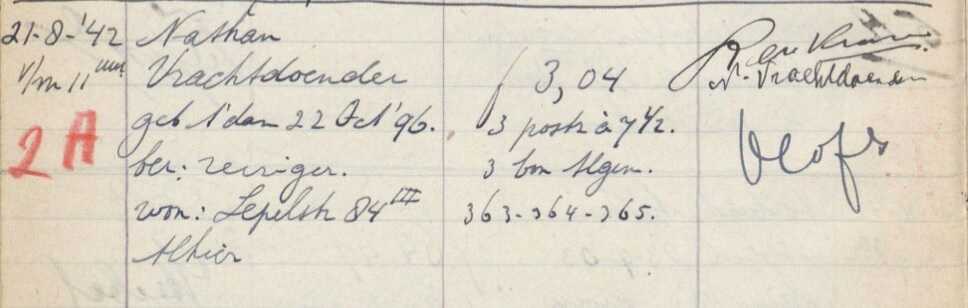 21-8-'42 Nathan
v/m 11 uur Vrachtdoender ƒ 3,04 N. Vrachtdoender
geb A'dam 22 Oct '96. 3 postz à 7½.
2A
ber: reiziger. 3 bon Algem.
won: Lepelstr 84 III 363-364-365.
Alhier